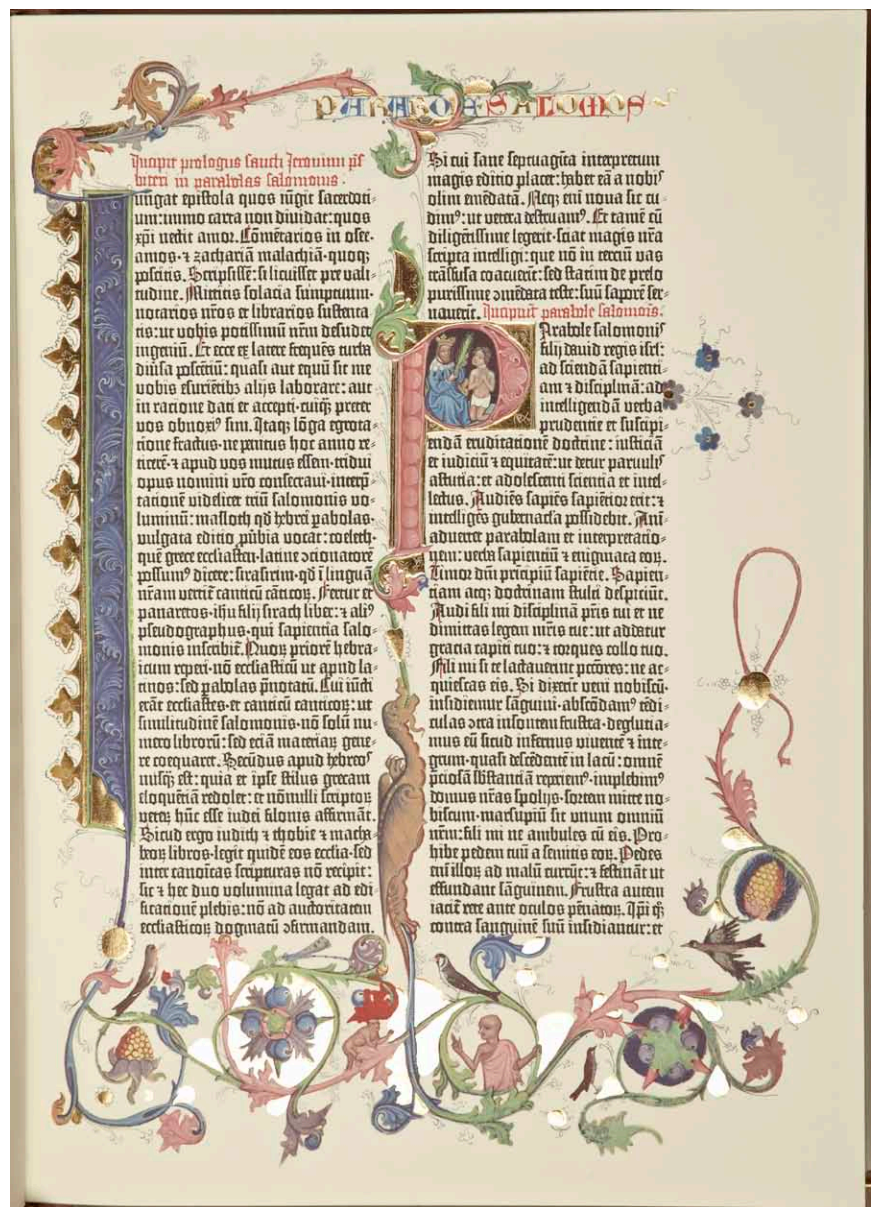 PARABOLE SALOMOIS
Incipit prologus sancti Jeronimi p̄s
biteri in parabolas salomonis.
Iungat epistola quos iūgit sacerdoti⸗
um:immo carta non diuidat:quos
xp̄i nectit amor. Cōmētarios in osee·
amos·ꝛ zachariā malachiā·quoqꝫ
poscitis. Scripsissē:si licuisset pre vali⸗
tudine. Mittitis solacia sumptuum·
notarios nr̄os et librarios sustenta⸗
tis:ut vobis potissimū nr̄m desudet
ingeniū. Et ecce ex latere frequēs turba
diūsa poscētiū: quasi aut equū sit me
vobis esuriētibꝫ alijs laborare: aut
in racione dati et accepti·cuiꝗ̄ preter
vos obnoxiꝰ sim. Itaqꝫ lōga egrota⸗
tione fractus·ne penitus hoc anno re⸗
ticerē·ꝛ apud vos mutus essem·tridui
opus nomini vr̄o consecraui·interp̄⸗
tationē videlicet triū salomonis vo⸗
luminū: masloth qd̄ hebrei ꝑabolas·
vulgata editio ꝓūbia vocat: coeleth·
quē grece ecclesiasten·latine ↄcionatorē
possumꝰ dicere: sirasirim·qd̄ ī linguā
nr̄am vertit̄ canticū cāticoꝝ. Fertur et
panaretos·ih̄u filij sirach liber: ꝛ aliꝰ
pseudographus·qui sapientia salo⸗
monis inscribit̄. Quoꝝ priorē hebra⸗
icum reperi·nō ecclesiasticū ut apud la⸗
tinos: sed ꝑabolas p̄notatū. Cui iūcti
erāt ecclesiastes·et canticū canticoꝝ: ut
similitudinē salomonis·nō solū nu⸗
mero librorū: sed eciā materiaꝝ gene⸗
re coequaret. Secūdus apud hebreoꝰ
nusꝗ̄ est: quia et ipse stilus grecam
eloquētiā redolet: et nōnulli scriptoꝝ
veteꝝ hūc esse iudei filonis affirmāt.
Sicud ergo iudith ꝛ thobie ꝛ macha⸗
beoꝝ libros·legit quidē eos ecclesia·sed
inter canoīcas scripturas nō recipit:
sic ꝛ hec duo volumina legat ad edi⸗
ficationē plebis: nō ad auctoritatem
ecclesiasticoꝝ dogmatū ↄfirmandam.
Si cui sane septuagīta interpretum
magis editio placet: habet eā a nobiꝰ
olim emēdatā. Neqꝫ enī noua sic cu⸗
dimꝰ: ut vetera destruamꝰ. Et tamē cū
diligētissime legerit·sciat magis nr̄a
scripta intelligi: que nō in terciū vas
trāsfusa coacuerīt: sed statim de prelo
purissime ↄmēdata teste: suū saporē ser⸗
uauerīt. Incipiūt parabole salomonis.
Parabole salomonis
filij dauid regis isrl̄:
ad sciendā sapienti⸗
am ꝛ disciplinā: ad
intelligendā verba
prudentie et suscipi⸗
endā eruditationē doctrine: iusticiā
et iudiciū ꝛ equitatē: ut detur paruuliꝰ
astutia: et adolescenti scientia et intel⸗
lectus. Audiēs sapiēs sapiētior erit: ꝛ
intelligēs gubernacl̄a possidebit. Ani⸗
aduertet parabolam et interpretatio⸗
nem: verba sapientiū ꝛ enigmata eoꝝ.
Timor dn̄i prīcipiū sapiētie. Sapien⸗
tiam atqꝫ doctrinam stulti despiciūt.
Audi fili mi disciplinā pr̄is tui et ne
dimittas legem mr̄is tue: ut addatur
gracia capiti tuo: ꝛ torques collo tuo.
Fili mi si te lactauerint pctōres: ne ac⸗
quiescas eis. Si dixerīt veni nobiscū·
insidiemur sāguini·abscōdamꝰ tēdi⸗
culas ↄtra insontem frustra·degluttia⸗
mus eū sicud infernus viuentē ꝛ inte⸗
grum·quasi descēdentē in lacū: omnē
p̄ciosā sb̄stantiā reperiemꝰ·implebimꝰ
domus nr̄as spolijs·sortem mitte no⸗
biscum·marsupiū sit unum omniū
nr̄m: fili mi ne ambules cū eis. Pro⸗
hibe pedem tuū a semitis eoꝝ. Pedes
em̄ illoꝝ ad malū currūt: ꝛ festināt ut
effundant sāguinem. Frustra autem
iacit̄ rete ante oculos pēnatoꝝ. Ip̄i qꝫ
contra sanguinē suū insidiantur: et